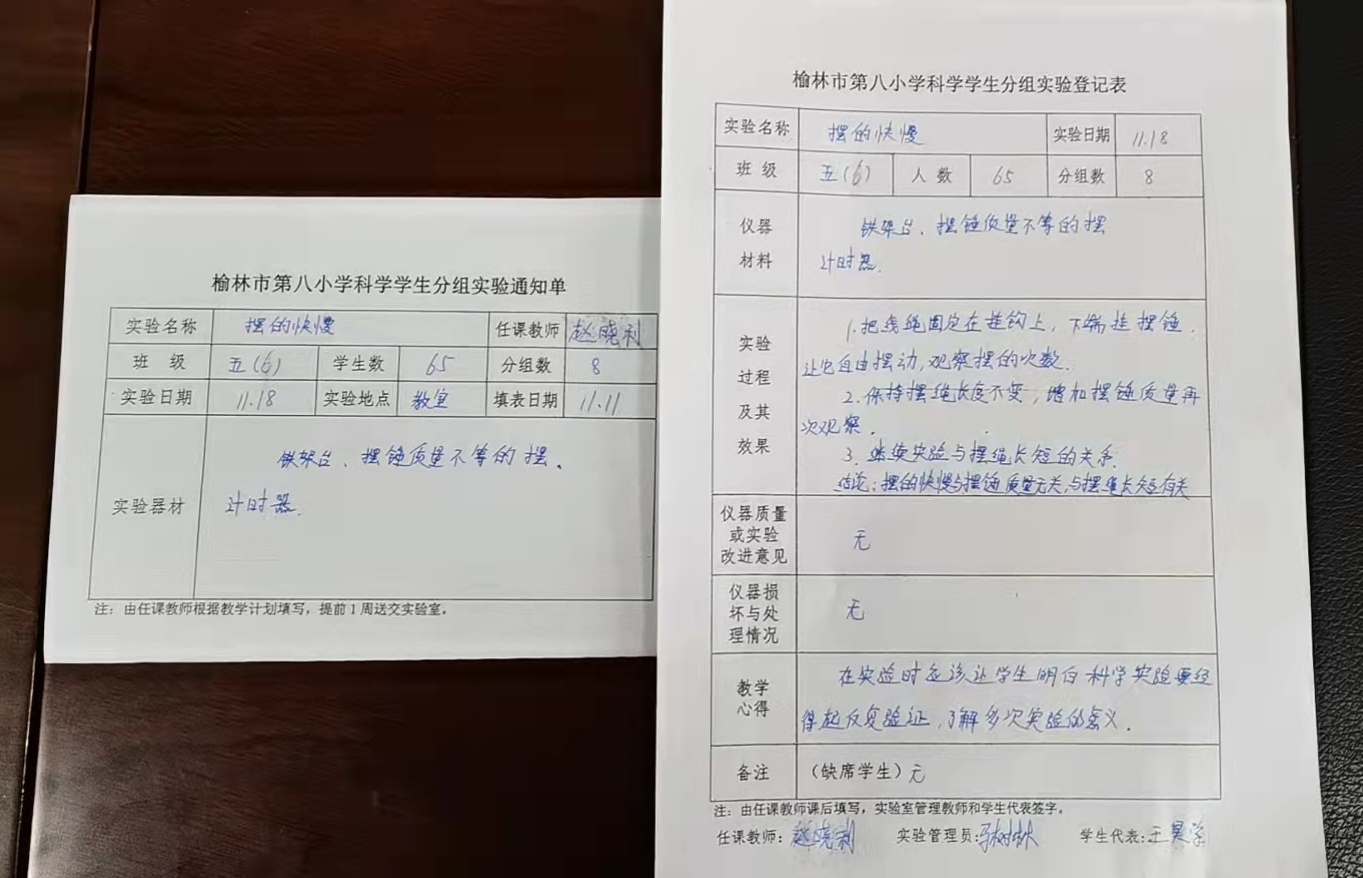 榆林市第八小学科学学生分组实验通知单
实验名称 摆的快慢 任课教师 赵晓利
班 级 五(6) 学生数 65 分组数 8
实验日期 11.18 实验地点 教室 填表日期 11.11
实验器材 铁架台、摆锤质量不等的摆、
计时器.
注：由任课教师根据教学计划填写，提前1周送交实验室。
榆林市第八小学科学学生分组实验登记表
实验名称 摆的快慢 实验日期 11.18
班 级 五(6) 人 数 65 分组数 8
仪器
材料
铁架台、摆锤质量不等的摆
计时器.
实验
过程
及其
效果
1.把线绳固定在挂钩上，下端挂摆锤.
让它自由摆动,观察摆的次数.
2.保持摆绳长度不变，增加摆锤质量再
次观察.
3.继续实验与摆绳长短的关系.
结论：摆的快慢与摆锤质量无关,与摆绳长短有关
仪器质量
或实验
改进意见
无
仪器损
坏与处
理情况
无
教学
心得
在实验时应该让学生明白科学实验要经
得起反复验证,了解多次实验的意义.
备注 （缺席学生）无
注：由任课教师课后填写，实验室管理教师和学生代表签字。
任课教师：赵晓利 实验管理员: 学生代表:王昊